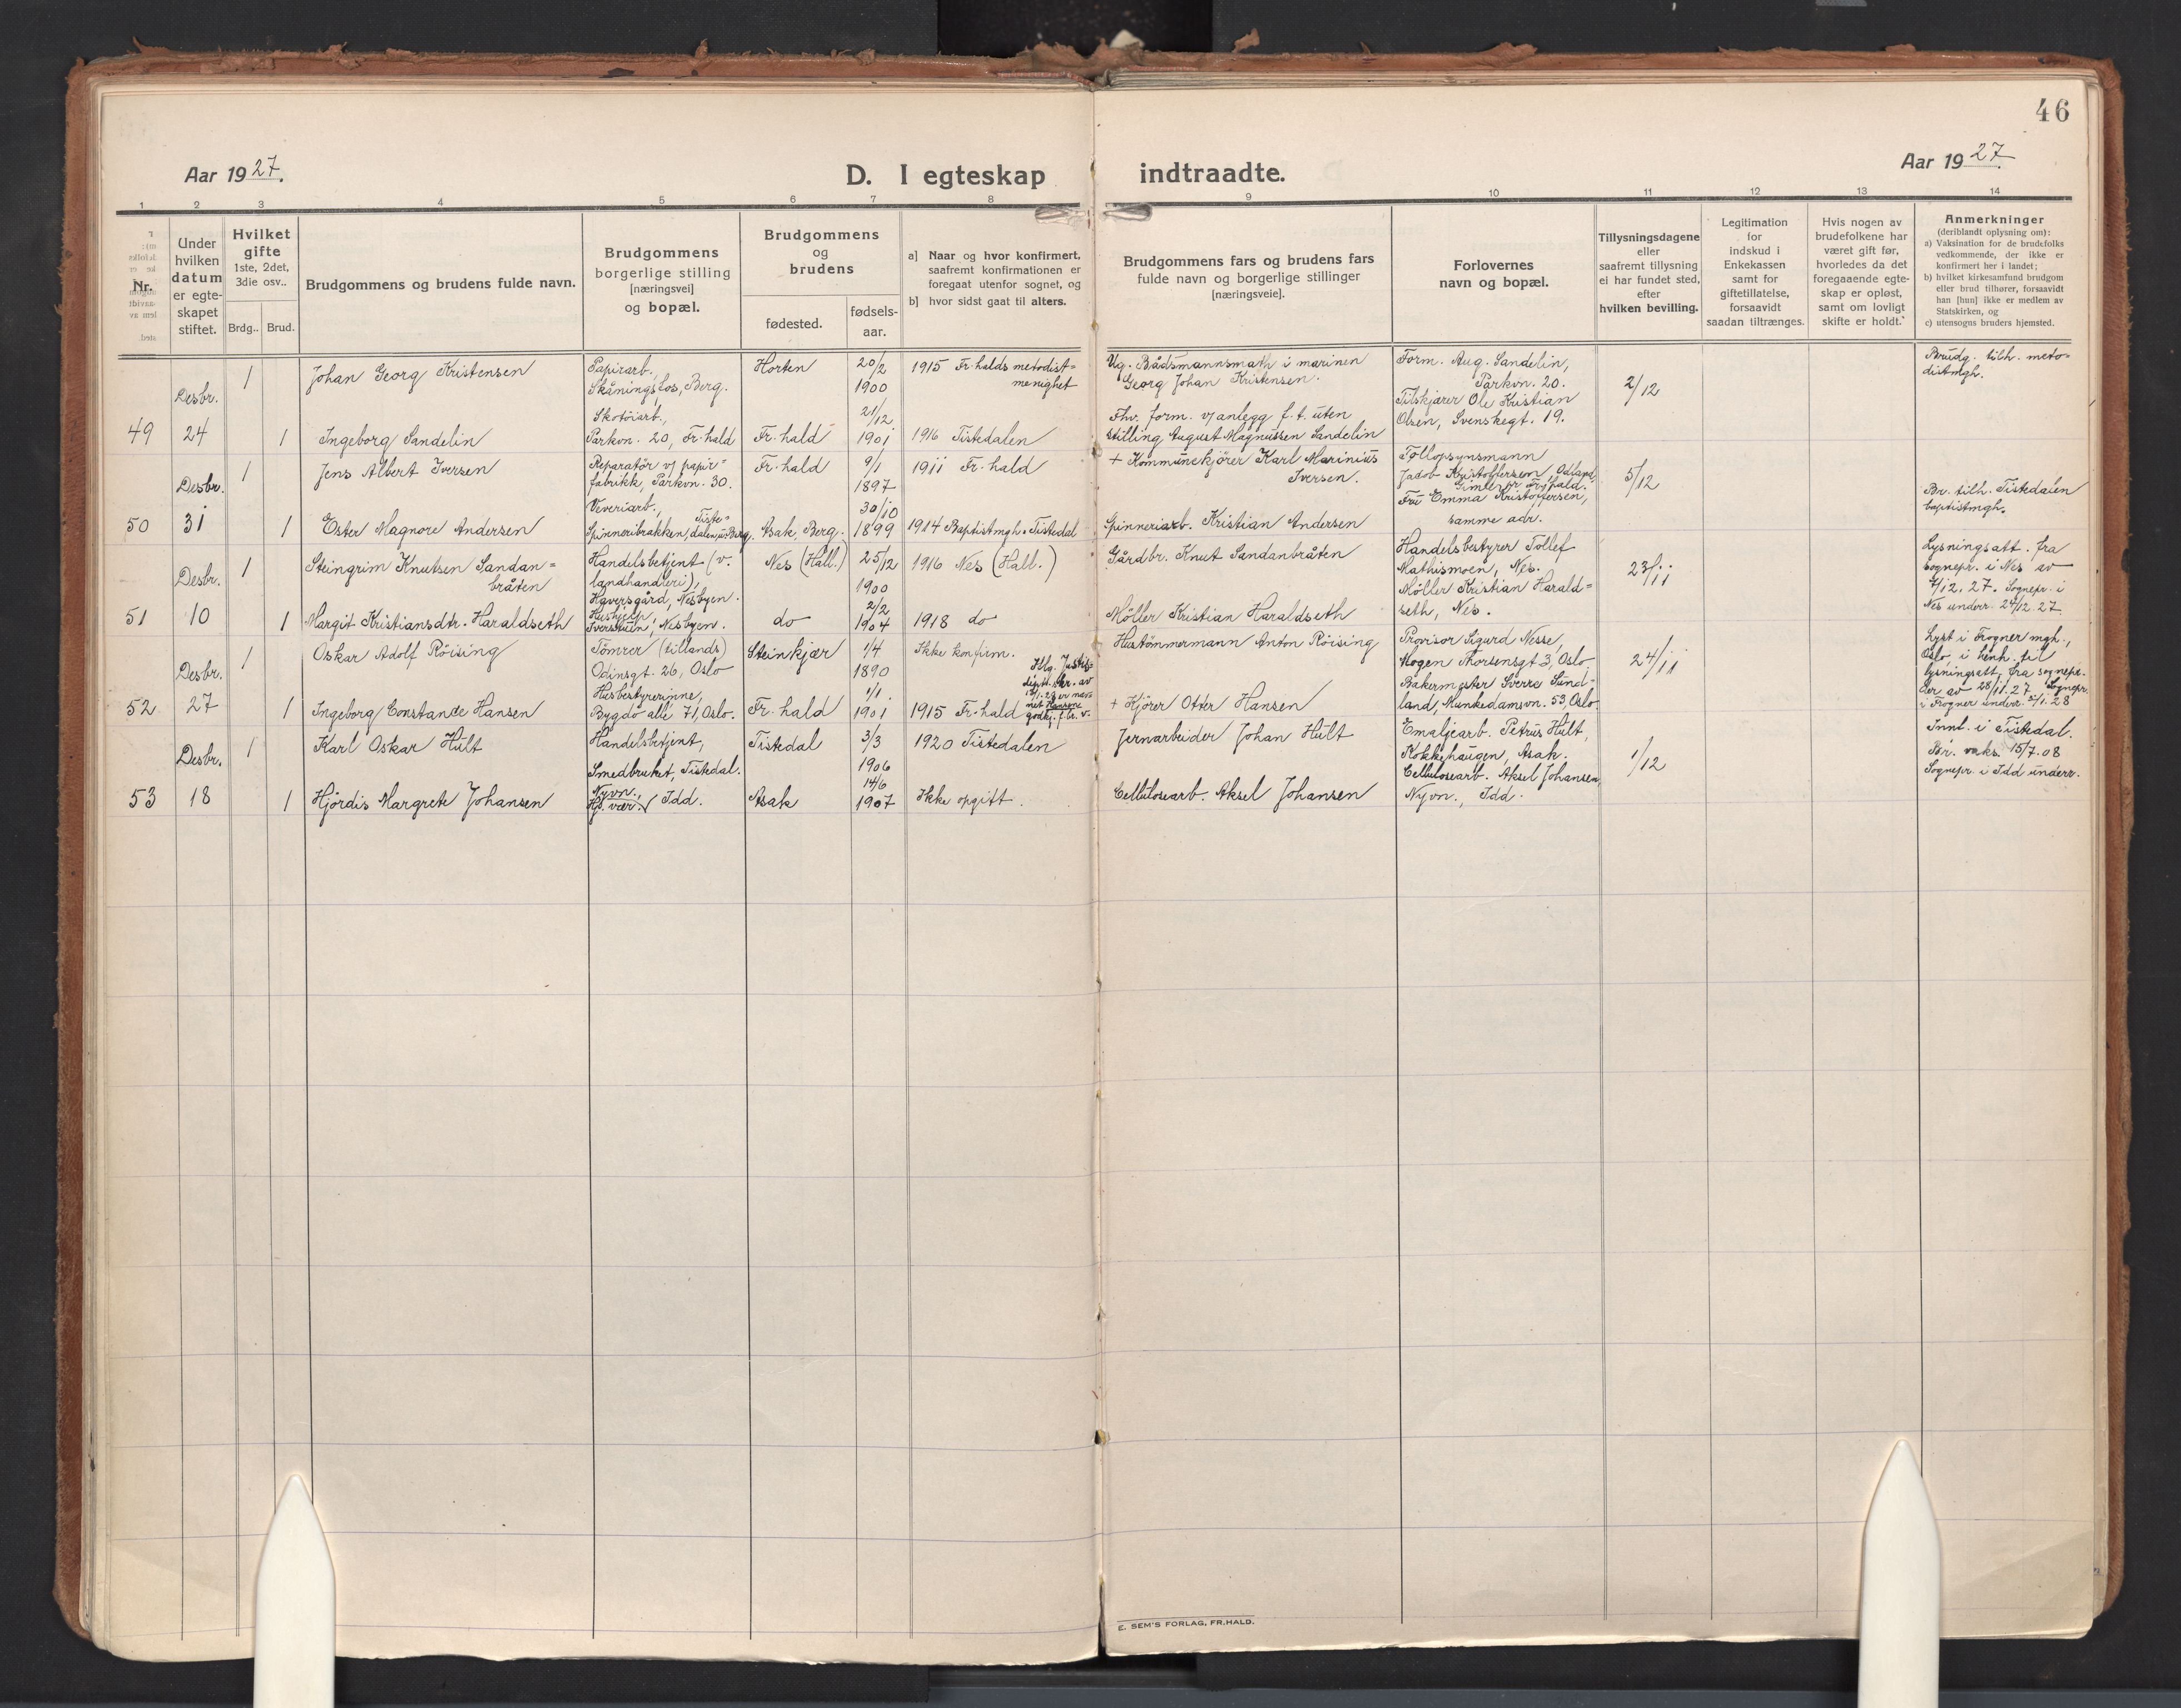 46
Aar 1927.
D. I egteskap indtraadte.
Aar 1927.
1 2 3 4 5 6 7 8 9 10 11 12 13 14
Nr.
Under hvilken datum er egteskapet stiftet.
Hvilket gifte
1ste, 2det, 3die osv..
Brdg.. Brud.
Brudgommens og brudens fulde navn.
Brudgommens
borgerlige stilling
[næringsvei]
og bopæl.
Brudgommens
og
brudens
fødested.
fødsels-
aar.
a] Naar og hvor konfirmert,
saafremt konfirmationen er
foregaat utenfor sognet, og
b] hvor sidst gaat til alters.
Brudgommens fars og brudens fars
fulde navn og borgerlige stillinger
[næringsveie].
Forlovernes
navn og bopæl.
Tillysningsdagene
eller
saafremt tillysning
ei har fundet sted,
efter
hvilken bevilling.
Legitimation
for
indskud i
Enkekassen
samt for
giftetillatelse,
forsaavidt
saadan tiltrænges.
Hvis nogen av
brudefolkene har
været gift før,
hvorledes da det
foregaaende egte-
skap er opløst,
samt om lovligt
skifte er holdt.
Anmerkninger
(deriblandt oplysning om):
a) Vaksination for de brudefolks
vedkommende, der ikke er
konfirmert her i landet;
b) hvilket kirkesamfund brudgom
eller brud tilhører, forsaavidt
han [hun] ikke er medlem av
Statskirken, og
c) utensogns bruders hjemsted.
49
Desbr.
24
1
1
Johan Georg Kristensen
Ingeborg Sandelin
Papirarb.,
Skåningsfos, Berg.
Skotöiarb.,
Parkvn. 20, Fr.hald
Horten
Fr.hald
20/2
1900
21/12
1901
1915 Fr.halds metodist=
menighet
1916 Tistedalen
Ug. Bådsmannsmath i marinen
Georg Johan Kristensen.
Fhv. form. v/anlegg f.t. uten
stilling August Magnussen Sandelin
Form. Aug. Sandelin,
Parkvn. 20.
Tilskjærer Ole Kristian
Olsen, Svenskegt. 19.
2/12
Brudg. tilh. meto=
distmgh.
50
Desbr.
31
1
1
Jens Albert Iversen
Ester Magnore Andersen
Reparatör v/ papir=
fabrikk, Parkvn. 30.
Veveriarb., Tiste=
Spinneribrakken, dalen, Berg.
Fr.hald
Asak, Berg.
9/1
1897
30/10
1899
1911 Fr.hald
1914 Baptistmgh. Tistedal
+ Kommunekjörer Karl Marinius
Iversen.
Spinneriarb. Kristian Andersen
Tollopsynsmann
Jacob Kristoffersen,
Fr.hald.
Fru Emma Kristoffersen,
samme adr.
5/12
Br. tilh. Tistedalen
baptistmgh.
51
Desbr.
10
1
1
Steingrim Knutsen Sandan=
bråten
Margit Kristiansdtr. Haraldseth
Handelsbetjent (v.
landhandleri),
Haversgård, Nesbyen.
Hushjelp,
Iverstuen, Nesbyen.
Nes (Hall.)
do
25/12
1900
2/2
1904
1916 Nes (Hall.)
1918 do
Gårdbr. Knut Sandanbråten
Möller Kristian Haraldseth
Handelsbestyrer Tollef
Mathismoen, Nes.
Möller Kristian Harald=
seth, Nes.
23/11
Lysningsatt. fra
sognepr. i Nes av
7/12.27. Sognepr. i
Nes underr. 24/12.27
52
Desbr.
27
1
1
Oskar Adolf Röising
Ingeborg Constance Hansen
Tömrer (tillands)
Odinsgt. 26, Oslo
Husbestyrerinne,
Bygdö allé 71, Oslo.
Steinkjær
Fr.hald
1/4
1890
1/1
1901
Ikke konfirm.
1915 Fr.hald
Iflg. Justis=
dept. skr. av
er nav=
net Hansone
godkj. f. br. v.
Hustömmermann Anton Röising
+ Kjörer Otter Hansen
Provisor Sigurd Nesse,
Mogen Thorsensgt 3, Oslo
Bakermester Sverre Sund=
land, Munkedamsvn. 53, Oslo.
24/11
Lyst i Frogner mgh.,
Oslo i henh. til
lysningsatt. fra sognepr.
der av 28/11.27 Sognepr.
i Frogner underr. 2/1.28
53
Desbr.
18
1
1
Karl Oskar Hult
Hjördis Margrete Johansen
Handelsbetjent,
Smedbruket, Tistedal.
Nyvn.,
Hj. vær. Idd.
Tistedal
Asak
3/3
1906
14/6
1907
1920 Tistedalen
Ikke opgitt.
Jernarbeider Johan Hult
Cellulosearb. Aksel Johansen
Emaljearb. Petrus Hult,
Kokkehaugen, Asak.
Cellulosearb. Aksel Johansen,
Nyvn., Idd.
1/12
Innl. i Tistedal.
Br. vaks. 15/7.08
Sognepr. i Idd underr.
E. SEM'S FORLAG, FR.HALD.